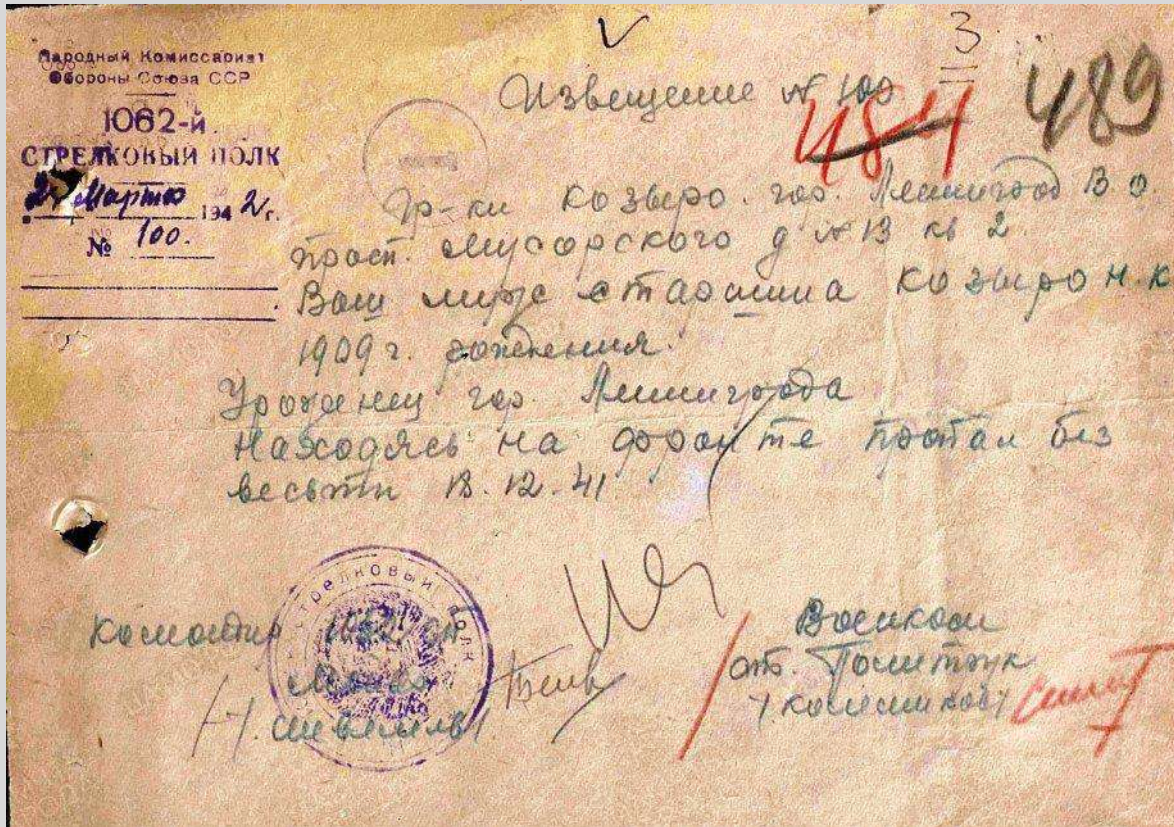 Народный Комиссариат
Обороны Союза ССР
1062-й
СТРЕЛКОВЫЙ ПОЛК
Марта 1942 г.
№ 100.
V
3
Извещение № 100
484
489
Гр-ки Козыро. гор. Ленинград В О
просп. Мусорского д № 13 кв 2
Ваш муж старшина Козыро Н.К
1909 г. рождения.
Уроженец гор. Ленинграда
Находясь на фронте пропал без
вести 18.12.41
Стрелковый полк
Командир 1062 сп
Майор
Военком
ст. Политрук